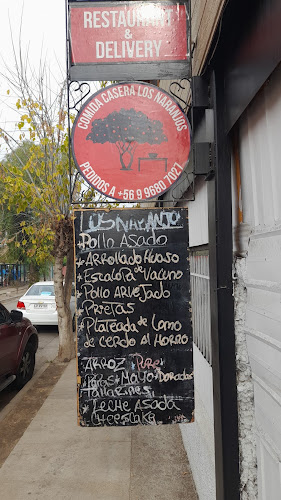 RESTAURANT
&
DELIVERY
COMIDA CASERA LOS NARANJOS
PEDIDOS A +56 9 9680 7027
LOS NARANJO
Pollo Asado
* Arrollado Huaso
* Escalopa de Vacuno
* Pollo Arvejado
* Prietas
* Plateada de Lomo
de Cerdo Al Horno
ARROZ * Pure
Papas * Mayo * Doradas
Tallarines
* Leche Asada